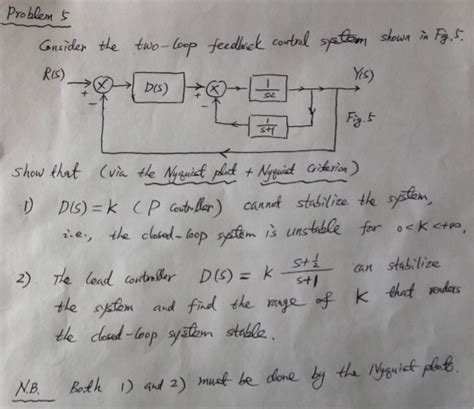 Problem 5
Consider the two-loop feedback control system shown in Fig. 5.
R(s) + - D(s) + - 1/s2 Y(s)
1/s+1 Fig. 5
show that (via the Nyquist plot + Nyquist Criterion)
1) D(s) = K (P controller) cannot stabilize the system,
i.e., the closed-loop system is unstable for 0<K<+∞.
2) The Lead controller D(s) = K s+1/2 / s+1 can stabilize
the system and find the range of K that renders
the closed-loop system stable.
N.B. Both 1) and 2) must be done by the Nyquist plots.